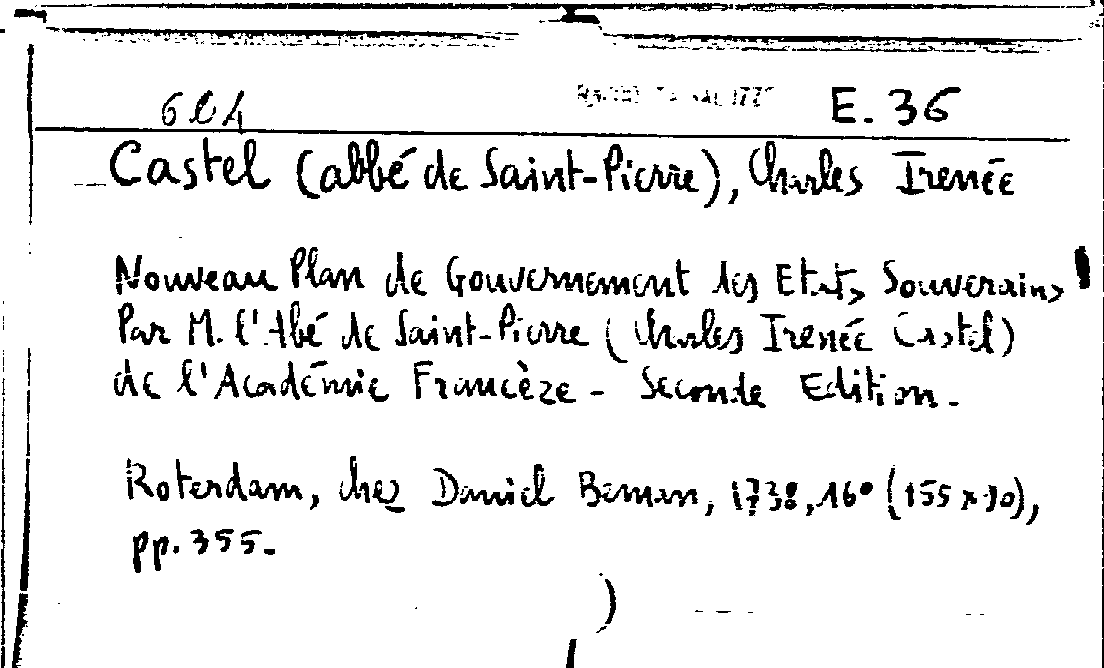 604 E. 36
Castel (abbé de Saint-Pierre), Charles Irenée
Nouveau Plan de Gouvernement des Etats Souverains
Par M. l'Abé de Saint-Pierre (Charles Irenée Castel)
de l'Académie Francèze - Seconde Edition.
Roterdam, chez Daniel Beman, 1738, 16° (155 x 90),
pp. 355.